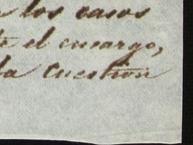 los casos
el encargo,
la cuestion